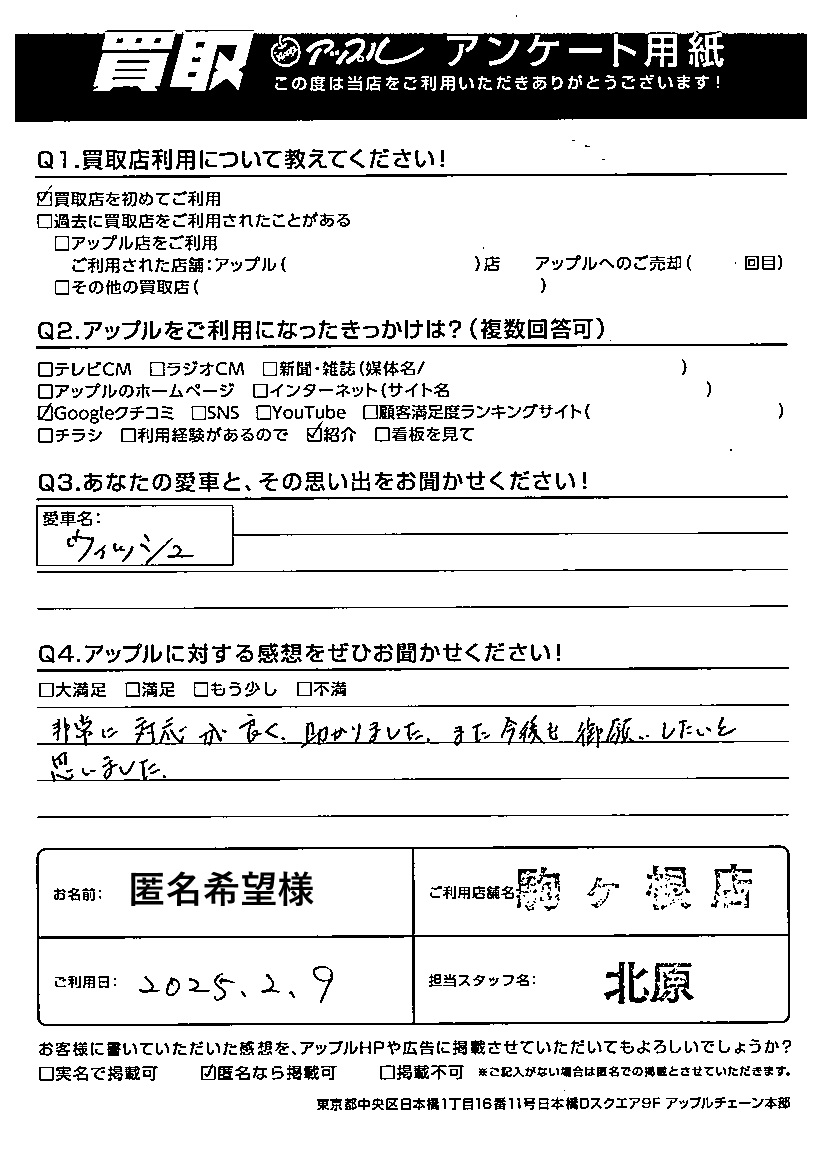 買取 アップル アンケート用紙
この度は当店をご利用いただきありがとうございます!
Q1.買取店利用について教えてください!
☑買取店を初めてご利用
□過去に買取店をご利用されたことがある
□アップル店をご利用
ご利用された店舗:アップル( )店 アップルへのご売却( 回目)
□その他の買取店( )
Q2.アップルをご利用になったきっかけは?(複数回答可)
□テレビCM □ラジオCM □新聞・雑誌(媒体名/ )
□アップルのホームページ □インターネット(サイト名 )
☑Googleクチコミ □SNS □YouTube □顧客満足度ランキングサイト( )
□チラシ □利用経験があるので ☑紹介 □看板を見て
Q3.あなたの愛車と、その思い出をお聞かせください!
愛車名:
ウィッシュ
Q4.アップルに対する感想をぜひお聞かせください!
□大満足 □満足 □もう少し □不満
非常に対応が良く、助かりました。また今後も御願いしたいと
思いました。
お名前: 匿名希望様 ご利用店舗名: 駒ヶ根店
ご利用日: 2025.2.9 担当スタッフ名: 北原
お客様に書いていただいた感想を、アップルHPや広告に掲載させていただいてもよろしいでしょうか?
□実名で掲載可 ☑匿名なら掲載可 □掲載不可 ※ご記入がない場合は匿名での掲載とさせていただきます。
東京都中央区日本橋1丁目16番11号日本橋Dスクエア9F アップルチェーン本部